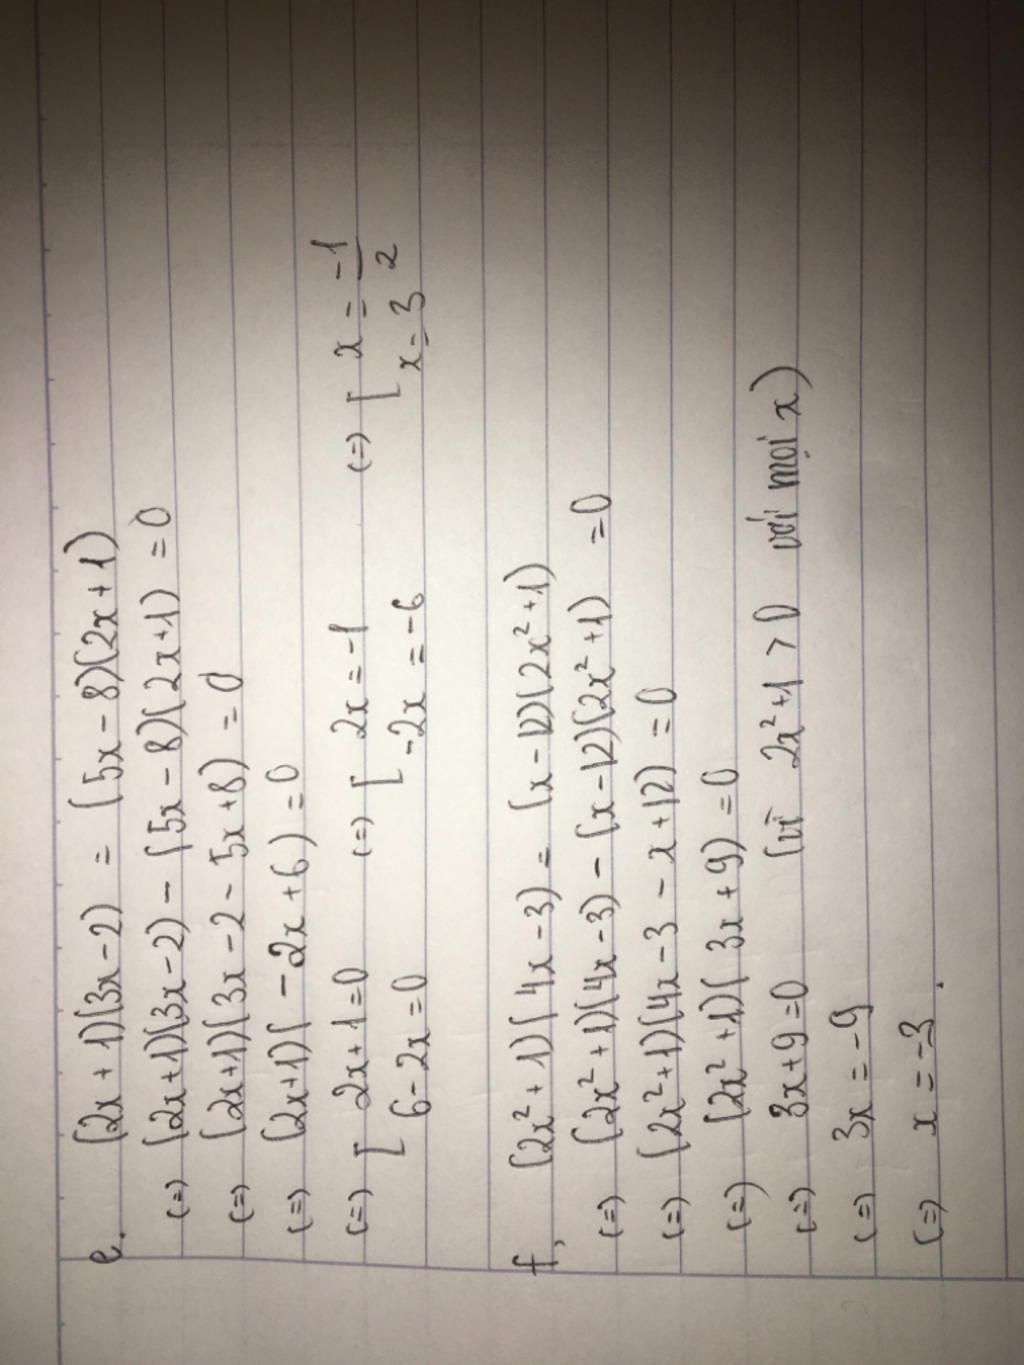 e. (2x+1)(3x-2) = (5x-8)(2x+1)
(=) (2x+1)(3x-2) - (5x-8)(2x+1) = 0
(=) (2x+1)(3x-2-5x+8) = 0
(=) (2x+1)(-2x+6) = 0
(=) [ 2x+1=0 (=) [ 2x=-1 (=) [ x = -1/2
6-2x=0 -2x=-6 x=3
f, (2x²+1)(4x-3) = (x-12)(2x²+1)
(=) (2x²+1)(4x-3) - (x-12)(2x²+1) =0
(=) (2x²+1)(4x-3-x+12) = 0
(=) (2x²+1)(3x+9) =0
(=) 3x+9=0 (vì 2x²+1 > 0 với mọi x)
(=) 3x=-9
(=) x=-3.